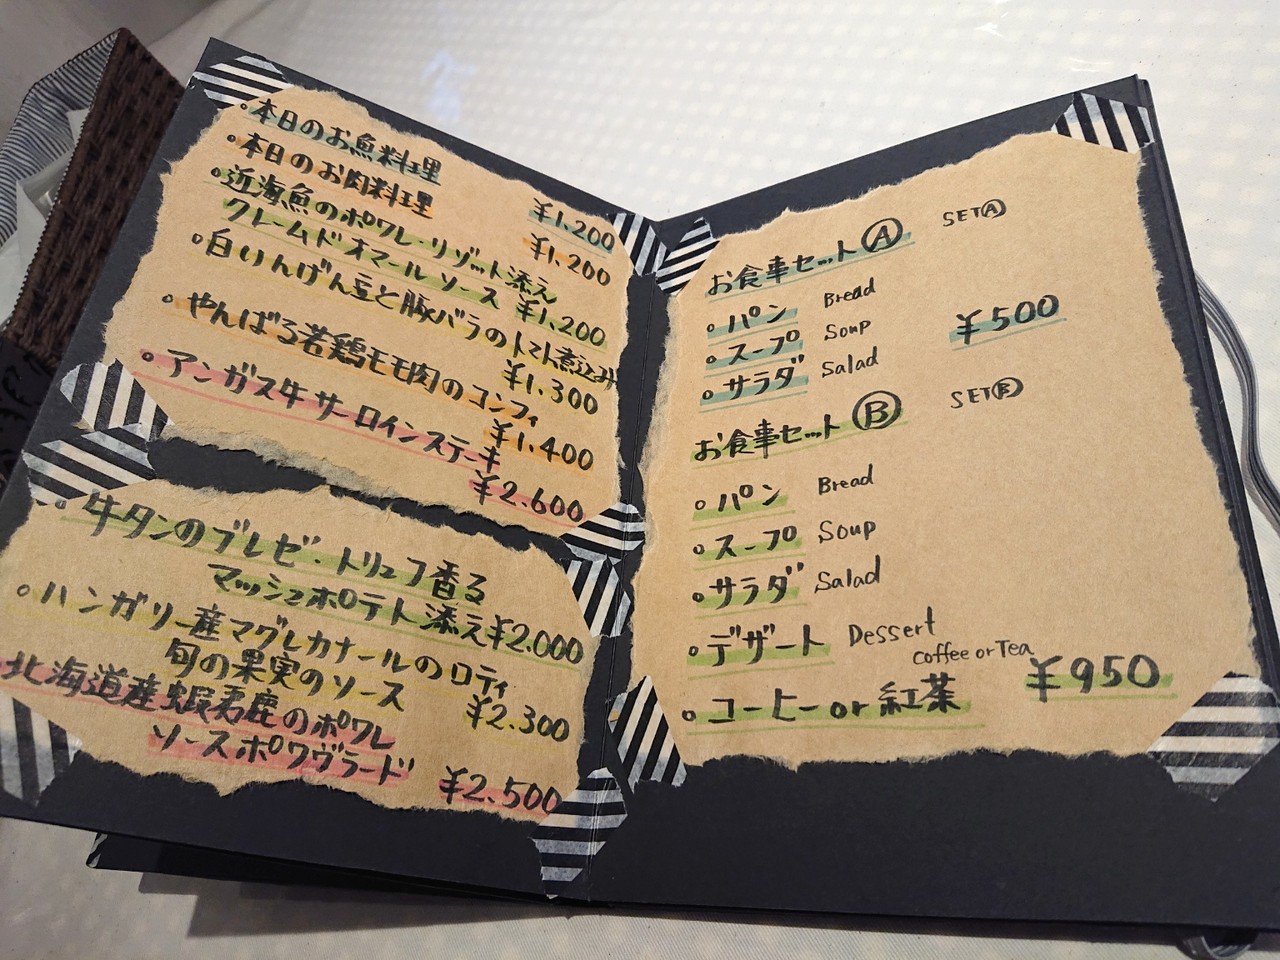 。本日のお魚料理
¥1,200
。本日のお肉料理
¥1,200
。近海魚のポワレ・リゾット添え
クレームドオマールソース ¥1,200
。白いんげん豆と豚バラのトマト煮込み
¥1,300
。やんばる若鶏モモ肉のコンフィ
¥1,400
。アンガス牛サーロインステーキ
¥2,600
。牛タンのブレゼ・トリュフ香る
マッシュポテト添え¥2,000
。ハンガリー産マグレカナールのロティ
旬の果実のソース
¥2,300
北海道産蝦夷鹿のポワレ
ソースポワヴラード
¥2,500
お食事セットⒶ SETⒶ
。パン Bread
。スープ Soup
¥500
。サラダ Salad
お食事セットⒷ SETⒷ
。パン Bread
。スープ Soup
。サラダ Salad
。デザート Dessert
coffee or Tea
。コーヒーor紅茶 ¥950